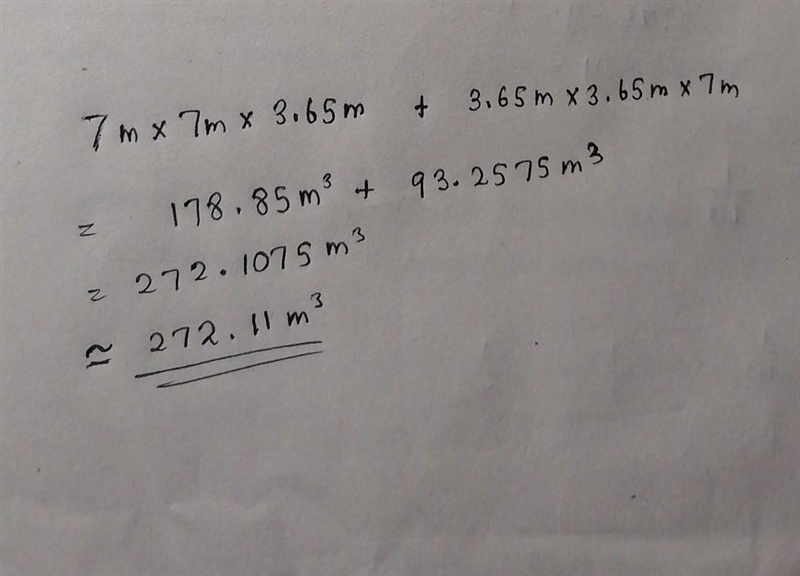 7m × 7m × 3.65m + 3.65m × 3.65m × 7m
= 178.85m³ + 93.2575m³
= 272.1075m³
≃ 272.11m³